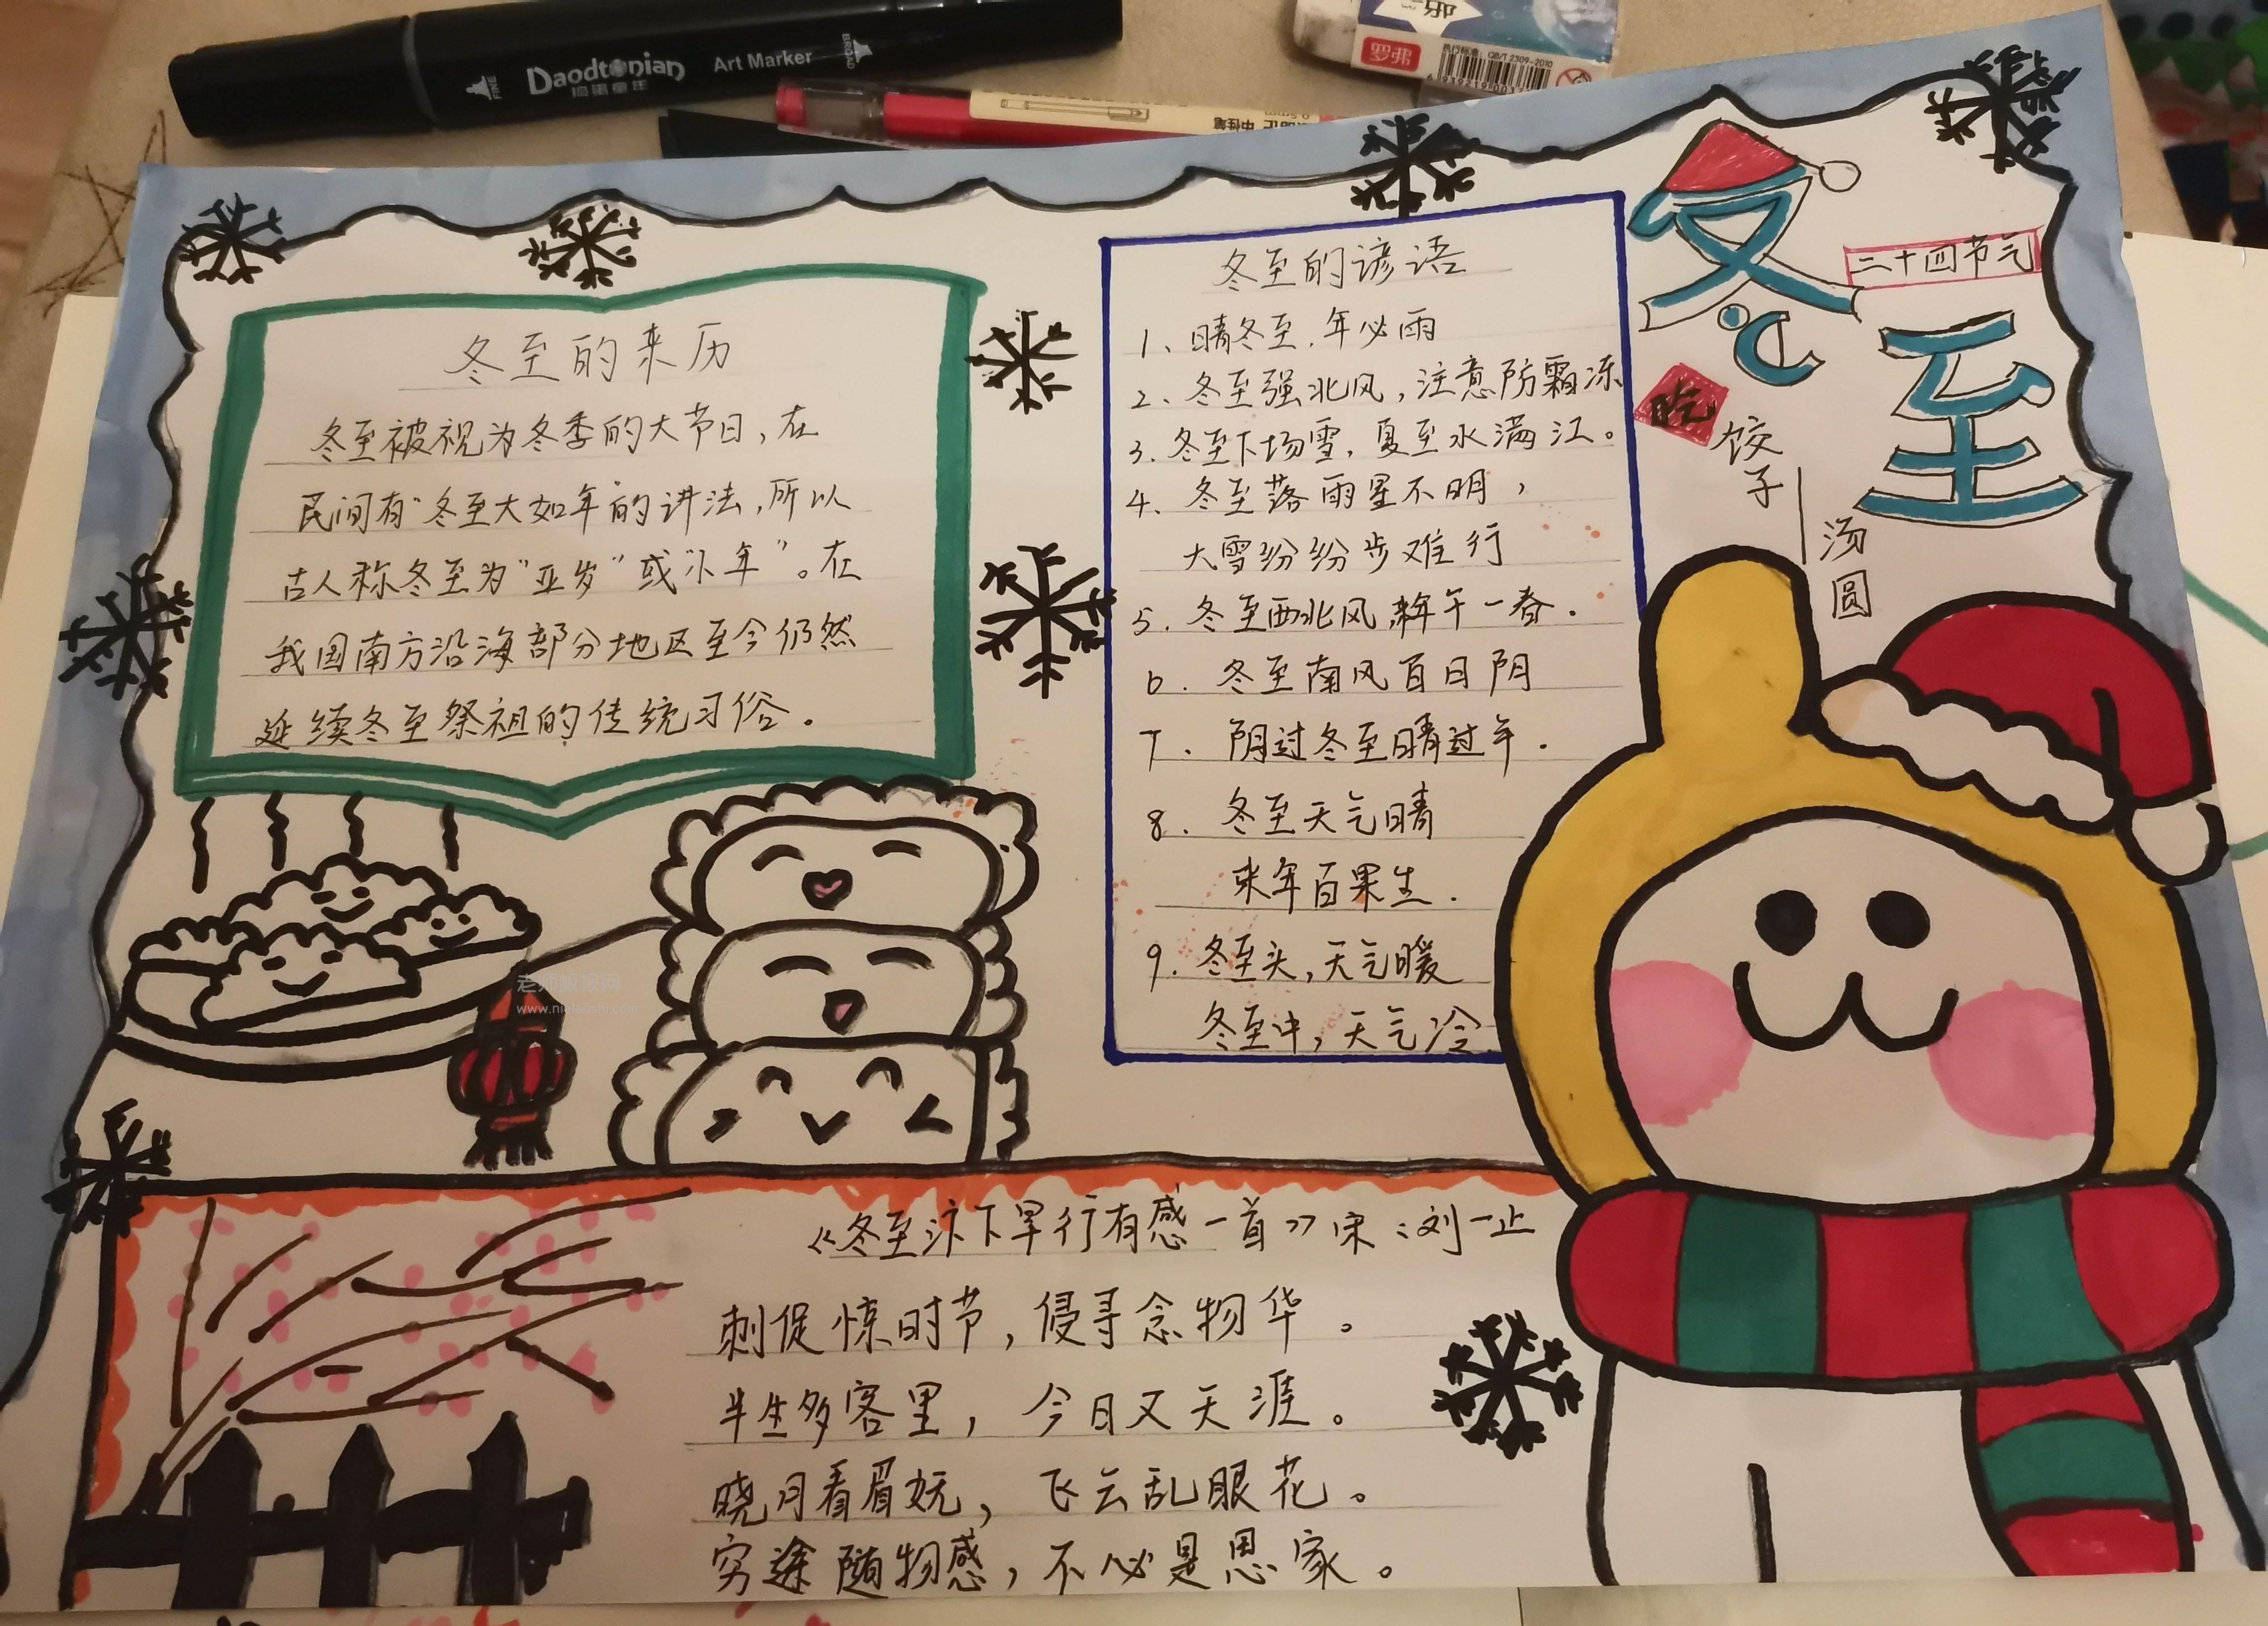 Daodtonian
Art Marker
FINE
BROAD
罗弗
执行标准: QB/T 2309-2010
冬至
二十四节气
吃
饺子
汤圆
冬至的来历
冬至被视为冬季的大节日,在
民间有“冬至大如年”的讲法,所以
古人称冬至为“亚岁”或“小年”。在
我国南方沿海部分地区至今仍然
延续冬至祭祖的传统习俗.
冬至的谚语
1、晴冬至.年必雨
2、冬至强北风,注意防霜冻
3.冬至下场雪,夏至水满江。
4、冬至落雨星不明,
大雪纷纷步难行
5.冬至西北风,来年干一春.
6.冬至南风百日阴
7.阴过冬至晴过年.
8.冬至天气晴
来年百果生.
9.冬至头,天气暖
冬至中,天气冷
老师板报网
《冬至汴下早行有感一首》宋:刘一止
刺促惊时节,侵寻念物华。
半生多客里,今日又天涯。
晓月看眉妩,飞云乱眼花。
穷途随物感,不必是思家。